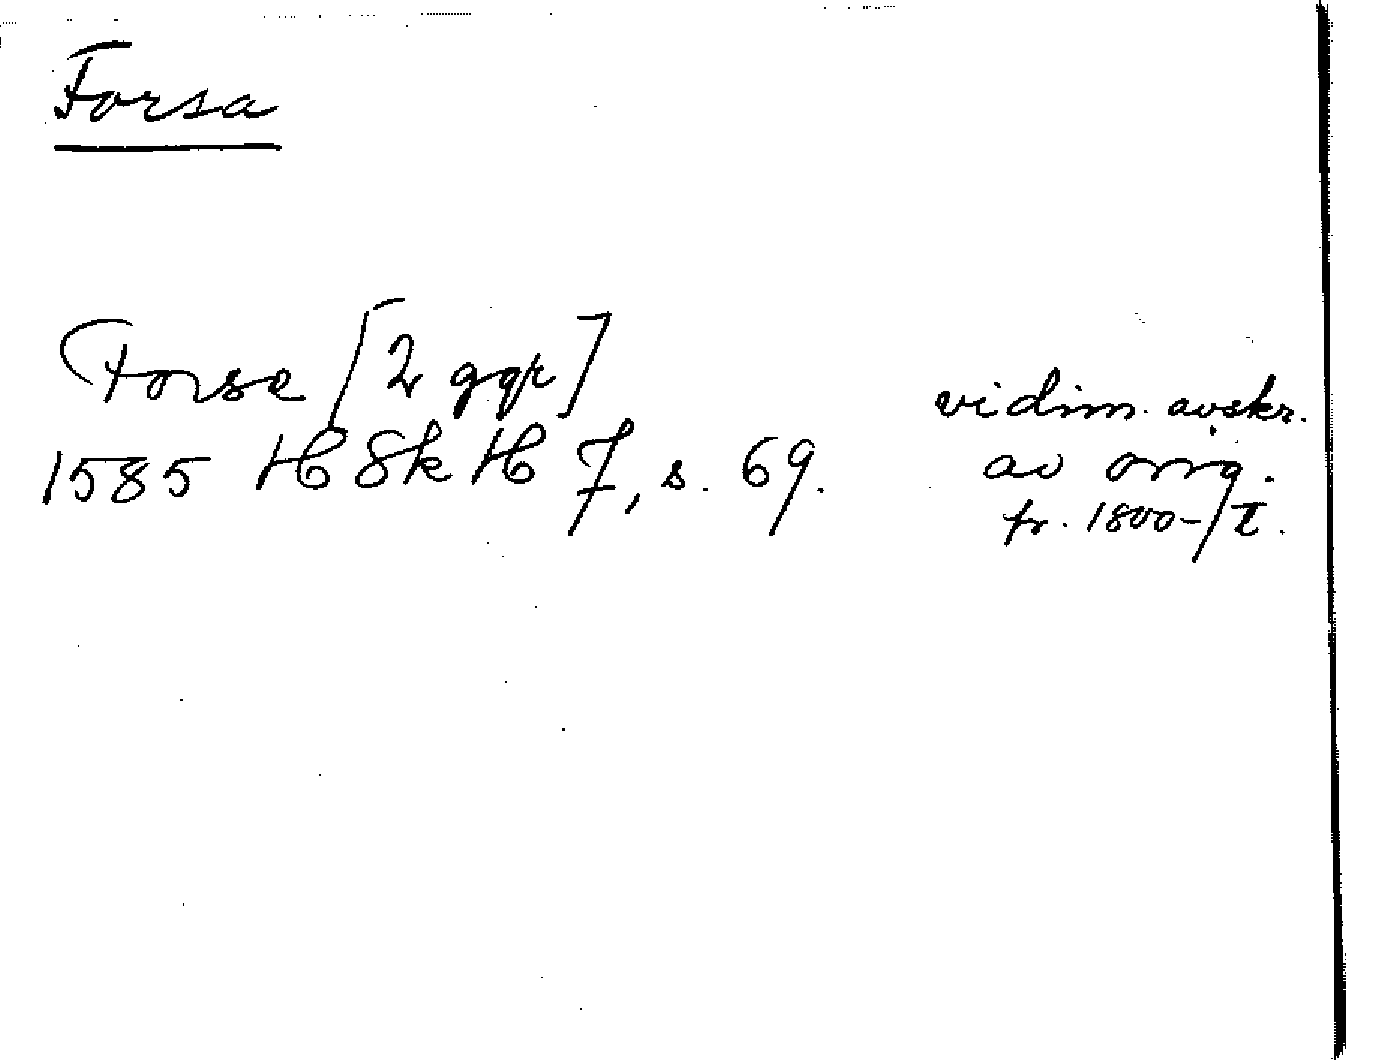 Forsa
Forse [2 ggr]
1585 HSkH 7, s. 69.
vidim. avskr.
av orig.
fr. 1800-t.